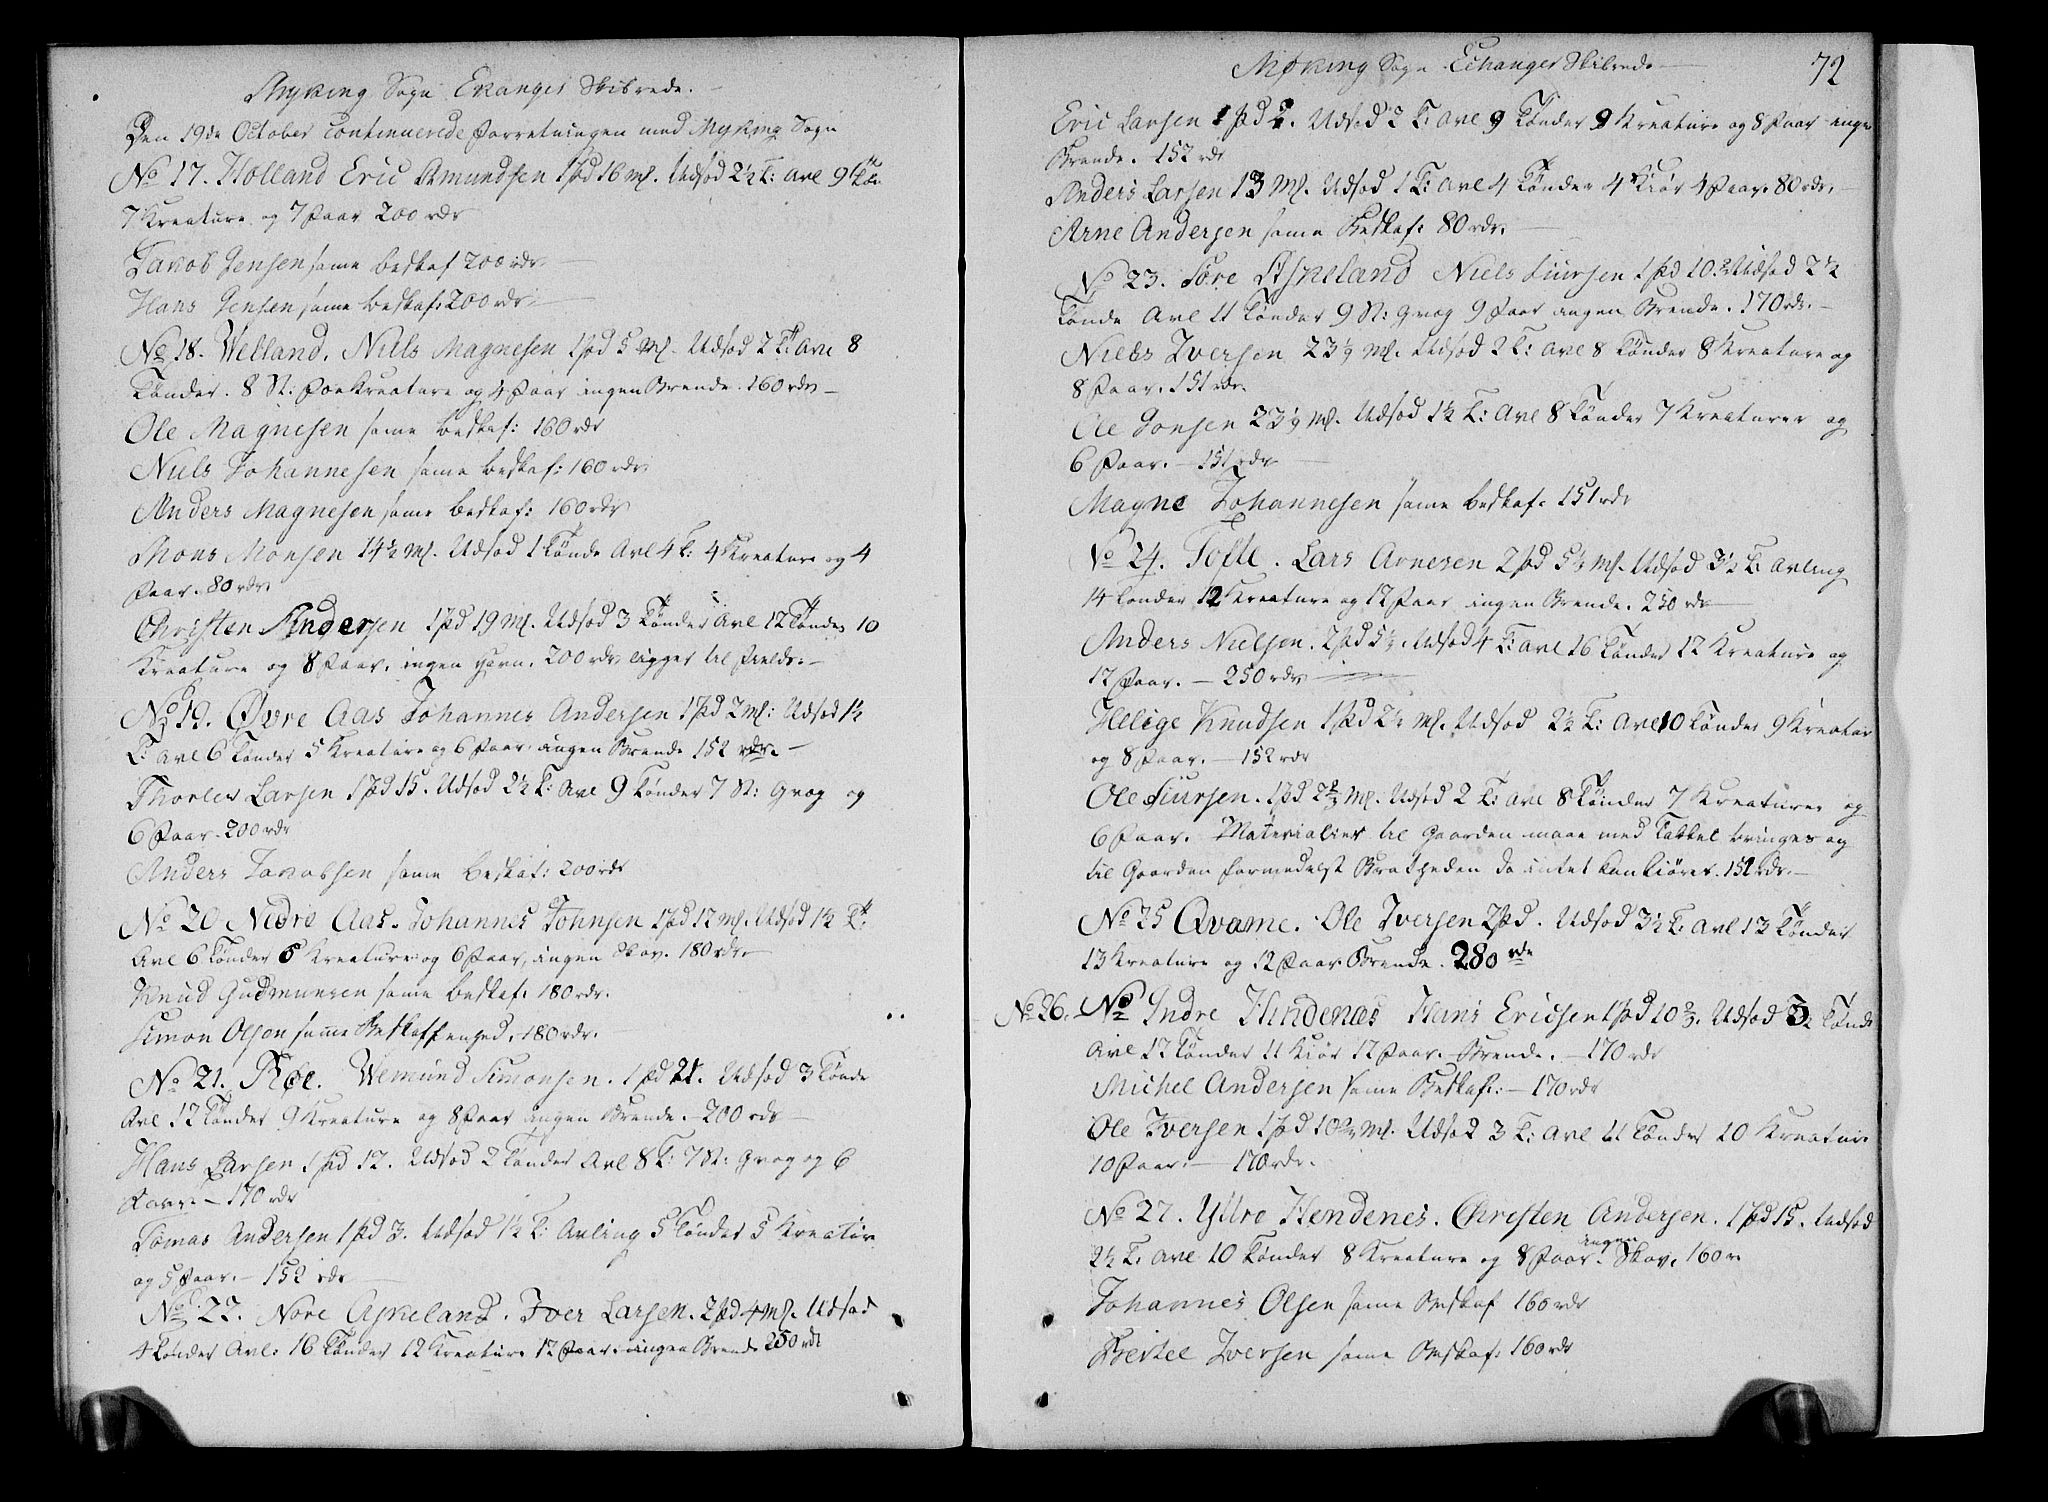 Myking Sogn Ekanger Skibrede.
Den 19de October continuerede Forretningen med Myking Sogn
No 17. Holland Eric Amundsen 1 pd 16 ml. Udsæd 2½ T: Avl 9 Tdr
7 Kreature og 7 Faar 200 rdr
Jakob Jensen same beskaf 200 rdr.
Hans Jensen same beskaf: 200 rdr.
No 18. Welland. Niels Magnesen 1 pd 5 ml. Udsæd 2 T: Avl 8
Tønder. 8 St: Foe Kreature og 4 Faar ingen Brende. 160 rdr
Ole Magnesen same beskaf: 160 rdr
Niels Johannesen same beskaf: 160 rdr
Anders Magnesen same beskaf: 160 rdr
Mons Monsen 14½ ml. Udsæd 1 Tønde Avl 4 T: 4 Kreature og 4
Faar. 80 rdr.
Christen Andersen 1 pd 19 ml. Udsæd 3 Tønder Avl 12 Tønder 10
Kreature og 8 Faar. ingen Havn. 200 rdr ligger til Fields.
No 19. Øvre Aas Johannes Andersen 1 pd 2 ml: Udsæd 1½
T: Avl 6 Tønder 5 Kreature og 6 Faar ingen Brende 152 rdr.
Larsen 1 pd 15. Udsæd 2½ T: Avl 9 Tønder 7 St: Qvæg og
6 Faar. 200 rdr
Anders Jakobsen same beskaf: 200 rdr
No 20 Nedre Aas. Johannes Johnsen 1 pd 12 ml. Udsæd 1½ T:
Avl 6 Tønder 5 Kreature og 6 Faar, ingen Skov. 180 rdr.
Knud Gudmunsen same beskaf: 180 rdr.
Simon Olsen samme Beskaffenhed. 180 rdr.
No 21. Røe. Wemund Simonsen. 1 pd 21. Udsæd 3 Tønde
Avl 12 Tønder 9 Kreature og 8 Faar ingen Brende. 200 rdr
Hans Larsen 1 pd 12. Udsæd 2 Tønder Avl 8 T: 7 St: Qvæg og 6
Faar. 170 rdr
Tomas Andersen 1 pd 3. Udsæd 1½ T: Avling 5 Tønder 5 Kreatur
og 5 Faar. 152 rdr
No 22. Nore Askeland. Iver Larsen. 2 pd 4 ml. Udsæd
4 Tønder Avl: 16 Tønder 12 Kreature 12 Faar ingen Brende 250 rdr
Myking Sogn Echanger Skibrede
72
Eric Larsen 1 pd 2. Udsæd 2 T: Avl 9 Tønder 9 Kreature og 8 Faar inge
Brende. 152 rdr
Anders Larsen 13 ml. Udsæd 1 T: Avl 4 Tønder 4 Kiør 4 Faar. 80 rdr.
Arne Andersen same Beskaf: 80 rdr.
No 23. Søre Askeland Niels Siursen 1 pd 10. Udsæd 2½
Tønde Avl 11 Tønder 9 St: Qvæg 9 Faar ingen Brende. 170 rdr.
Niels Iversen 23⅓ ml. Udsæd 2 T: Avl 8 Tønder 8 Kreature og
8 Faar. 151 rdr.
Ole Jonsen 23⅓ ml. Udsæd 1½ T: Avl 8 Tønder 7 Kreaturer og
6 Faar. 151 rdr
Magne Johannesen same beskaf. 151 rdr
No 24. Tofte. Lars Arnesen 2 pd 5½ ml. Udsæd 3½ T: Avling
14 Tønder 12 Kreature og 12 Faar ingen Brende. 250 rdr
Anders Nielsen. 2 pd 5½. Udsæd 4 T: Avl 16 Tønder 12 Kreature og
12 Faar. 250 rdr
Helige Knudsen 1 pd 2½ ml. Udsæd 2½ T: Avl 10 Tønder 9 Kreatur
og 8 Faar. 152 rdr
Ole Siursen. 1 pd 2⅔ ml. Udsæd 2 T: Avl 8 Tønder 7 Kreaturer og
6 Faar. Materialier til Gaarden maae med Takkel bringes og
til Gaarden formedelst Brathheden da intet kan kiøres. 152 rdr.
No 25 Qvame. Ole Iversen 2 pd. Udsæd 3½ T: Avl 13 Tønder
13 Kreature og 12 Faar Brende. 280 rdr
No 26. No Indre Hindenæs Hans Ericsen 1 pd 10⅔. Udsæd 3 Tønde
Avl 12 Tønder 11 Kiør 12 Faar. Brende. 170 rdr
Michel Andersen same Beskaf: 170 rdr
Ole Iversen 1 pd 10⅔ ml. Udsæd 3 T: Avl 11 Tønder 10 Kreatur
10 Faar. 170 rdr.
No 27. Ytre Hendenes. Christen Andersen. 1 pd 15. Udsæd
2½ T: Avl 10 Tønder 8 Kreature og 8 Faar. ingen Skov. 160 r
Johannes Olsen same Beskaf 160 rdr
Bertel Iversen same Beskaf: 160 rdr